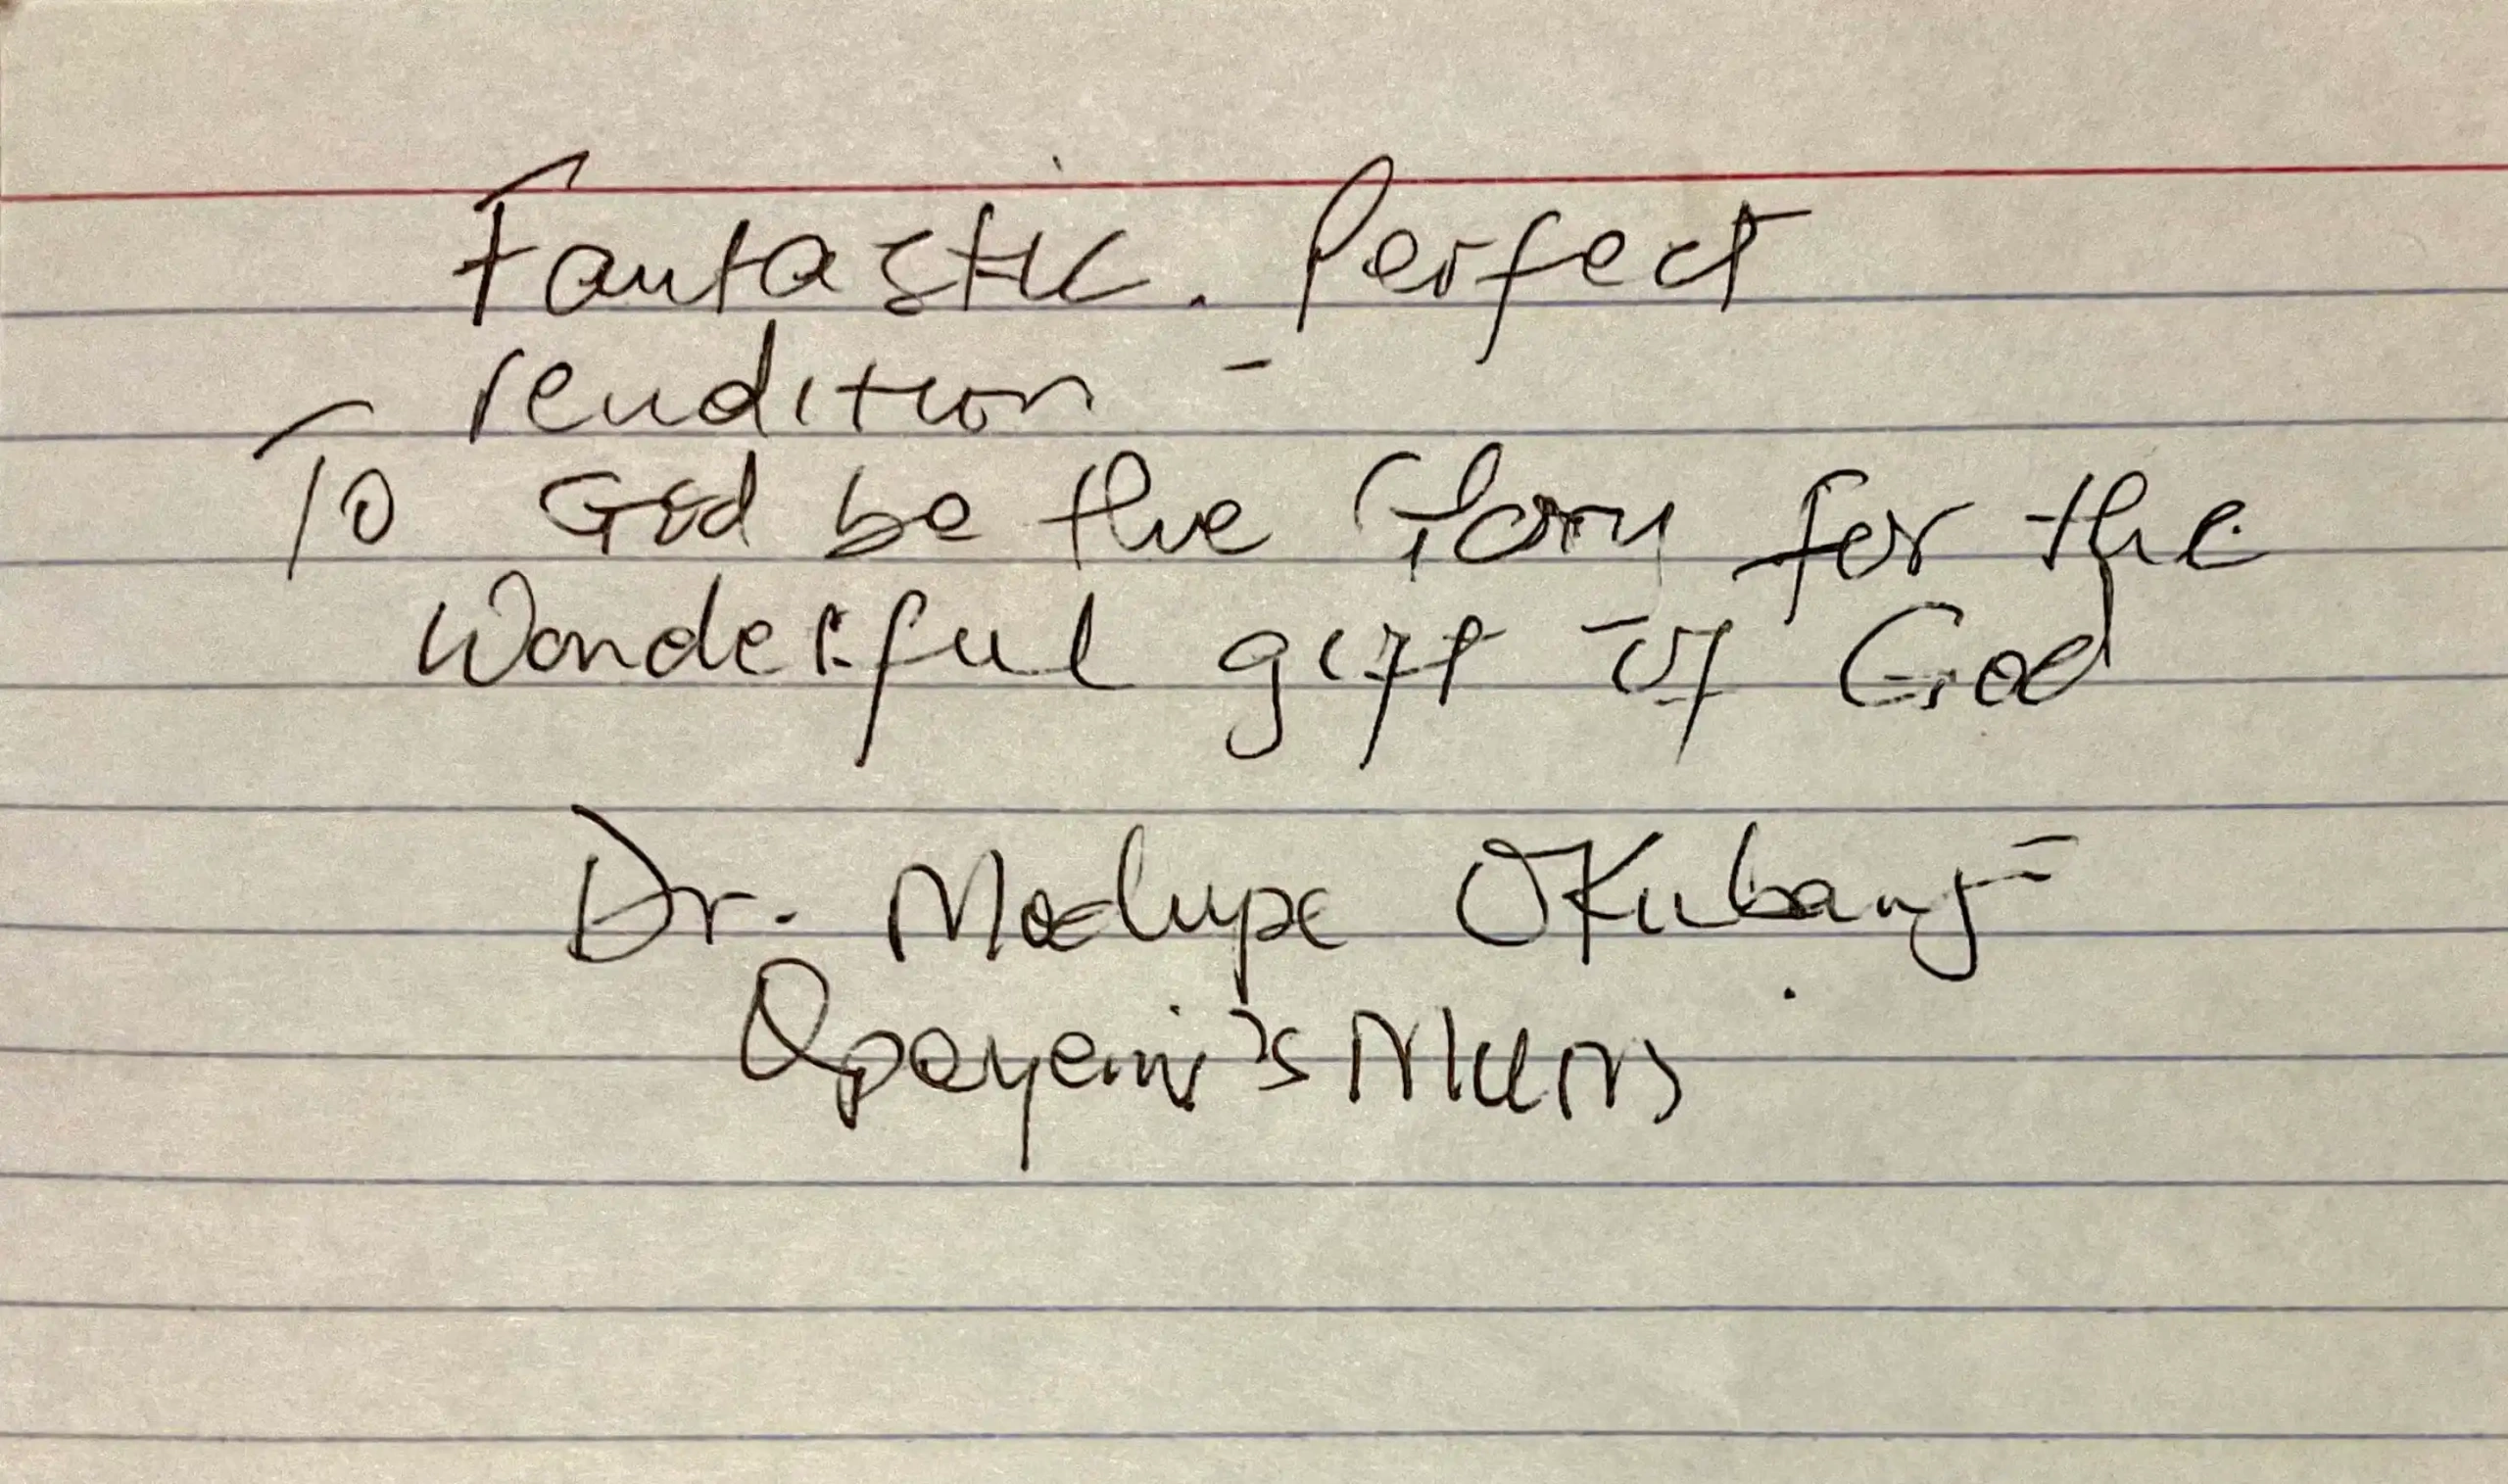 Fantastic. Perfect
rendition -
To God be the Glory for the
Wonderful gift of God
Dr. Modupe Okubanj
Opayemi's Mum